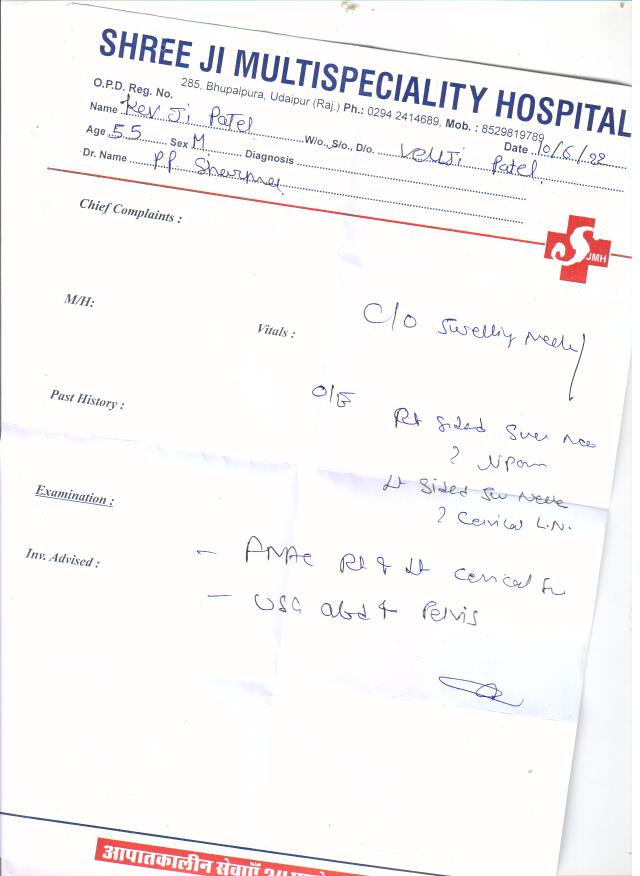 SHREE JI MULTISPECIALITY HOSPITAL
285, Bhupalpura, Udaipur (Raj.) Ph.: 0294 2414689, Mob. : 8529819789
O.P.D. Reg. No.
Name Kev Ji Patel W/o., S/o., D/o. Velji Patel
Date 10/6/22
Age 55 Sex M Diagnosis
Dr. Name PP Sharma
JMH
Chief Complaints :
M/H:
Vitals :
C/O Swelling Neck
Past History :
O/E
Rt Sided Swe Nec
?
Lt Sided Sw Neck
? Cervical L.N.
Examination :
Inv. Advised :
- FNAC Rt & Lt cervical Sw
- USG abd & Pelvis
आपातकालीन सेवाएँ